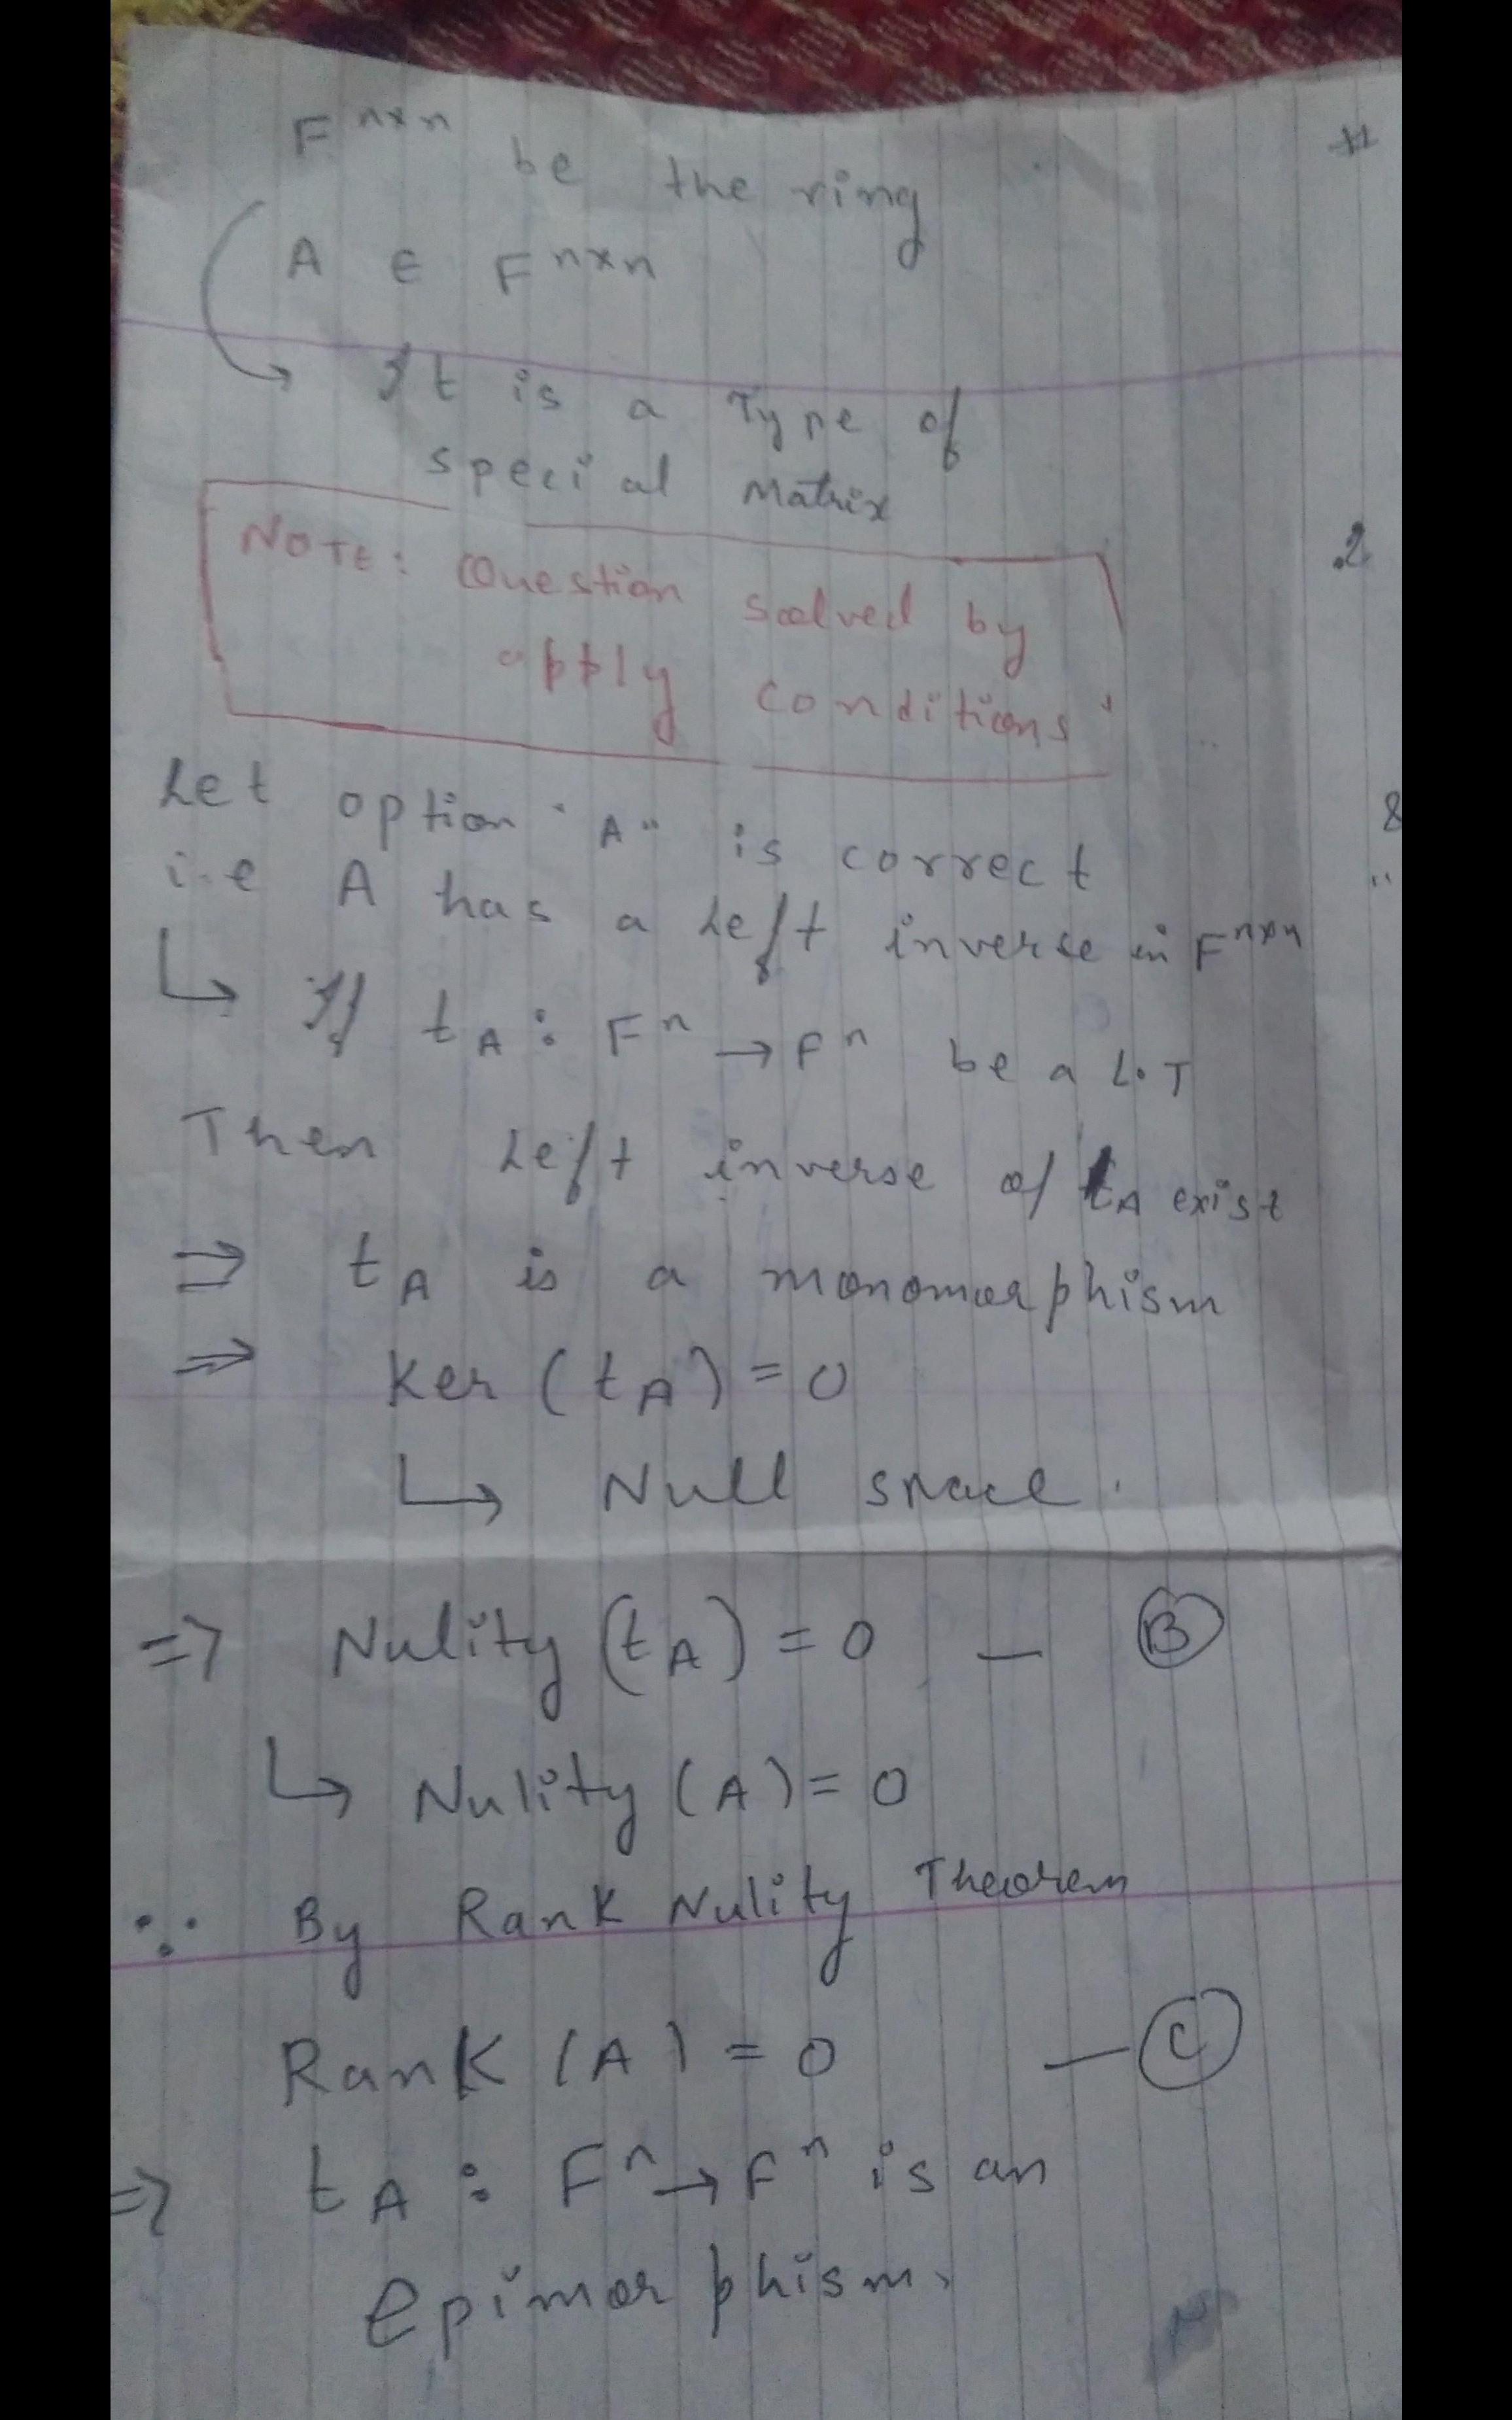 F^{n×n} be the ring
A ∈ F^{n×n}
It is a Type of
special Matrix
NOTE: Question solved by
apply conditions
Let option "A" is correct
i.e A has a Left inverse in F^{n×n}
↳ If t_A : F^n → F^n be a L.T
Then Left inverse of t_A exist
⇒ t_A is a monomorphism
⇒ Ker (t_A) = 0
↳ Null space.
⇒ Nulity (t_A) = 0 — Ⓑ
↳ Nulity (A) = 0
∴ By Rank Nulity Theorem
Rank (A) = 0 — Ⓒ
⇒ t_A : F^n → F^n is an
epimorphism.
.2
8